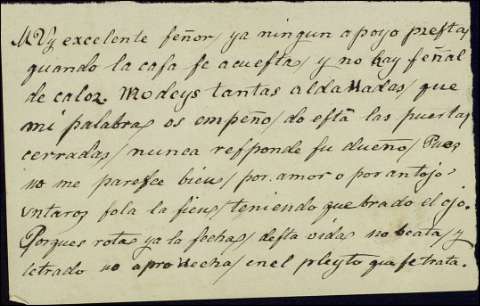 MVy excelente señor / ya ningun apoyo presta /
quando la casa se acuesta / y no hay señal
de caloz. No deys tantas aldavadas / que
mi palabra / os empeño / do está las puertas
cerradas / nunca responde su dueño / Pues
no me paresce bien / por amor o por antojo
vntaros sola la sien / teniendo quebrado el ojo.
Porques rota ya la fecha / desta vida no beata / y
letrado no aprovecha / enel pleyto que se trata.